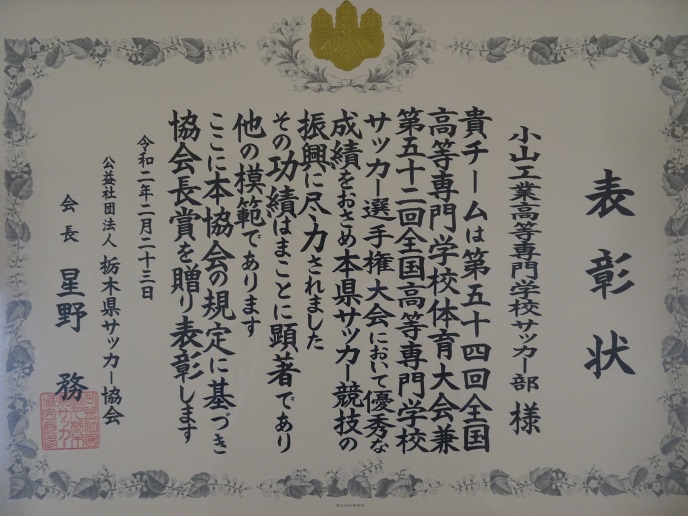 表彰状
小山工業高等専門学校サッカー部 様
貴チームは第五十四回全国
高等専門学校体育大会兼
第五十二回全国高等専門学校
サッカー選手権大会において優秀な
成績をおさめ本県サッカー競技の
振興に尽力されました
その功績はまことに顕著であり
他の模範であります
ここに本協会の規定に基づき
協会長賞を贈り表彰します
令和二年二月二十三日
公益社団法人 栃木県サッカー協会
会長 星野 務